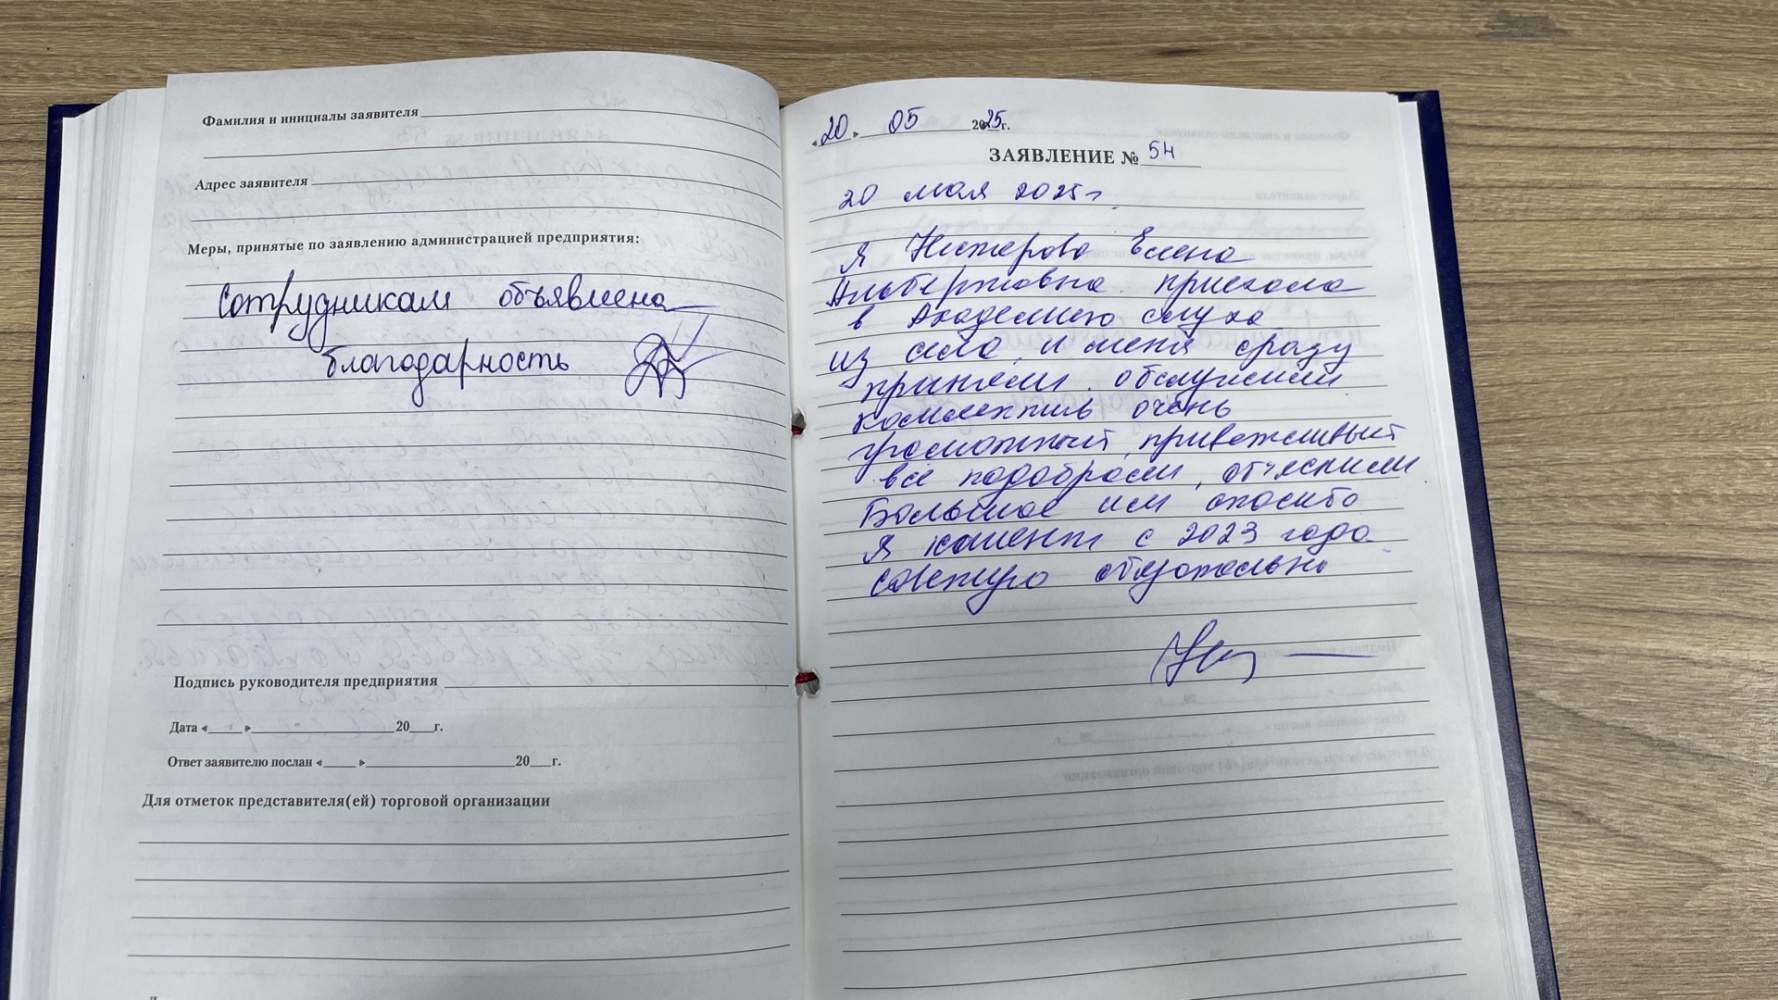 Фамилия и инициалы заявителя
Адрес заявителя
Меры, принятые по заявлению администрацией предприятия:
Сотрудникам объявлена
благодарность
Подпись руководителя предприятия
Дата « » 20 г.
Ответ заявителю послан « » 20 г.
Для отметок представителя(ей) торговой организации
«20» 05 2025г.
ЗАЯВЛЕНИЕ № 54
20 мая 2025г.
Я Елена
Альбертовна приехала
в Академию слуха
из села, и меня сразу
приняли, обслужили
Коллектив очень
грамотный, приветливый
всё подобрали, объяснили
Большое им спасибо
Я клиент с 2023 года
Советую обязательно